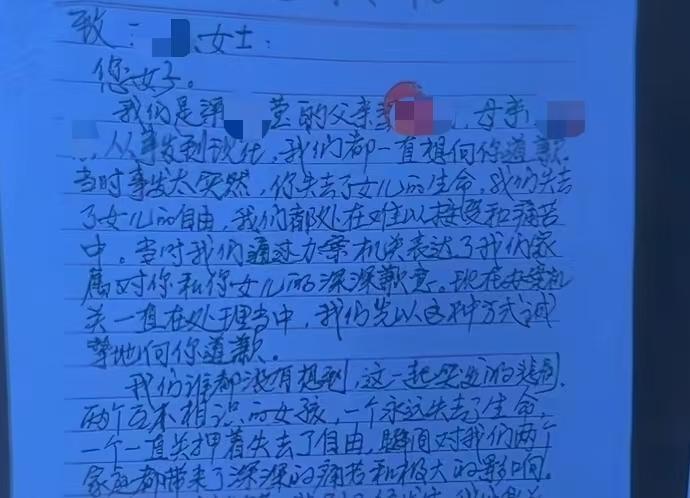 致: 女士:
您好。
我们是谭 莹的父亲 , 母亲
, 从事发到现在, 我们都一直想向你道歉
当时事发太突然, 你失去了女儿的生命, 我们失去
了女儿的自由, 我们都处在难以接受和痛苦
中。当时我们通过办案机关表达了我们家
属对你和你女儿的深深歉意。现在办案机
关一直在处理当中, 我们先以这种方式诚
挚地向你道歉。
我们谁都没有想到, 这一起突发的悲剧,
两个互不相识的女孩, 一个永远失去了生命,
一个一直关押着失去了自由, 瞬间对我们两个
家庭都带来了深深的痛苦和极大的影响。